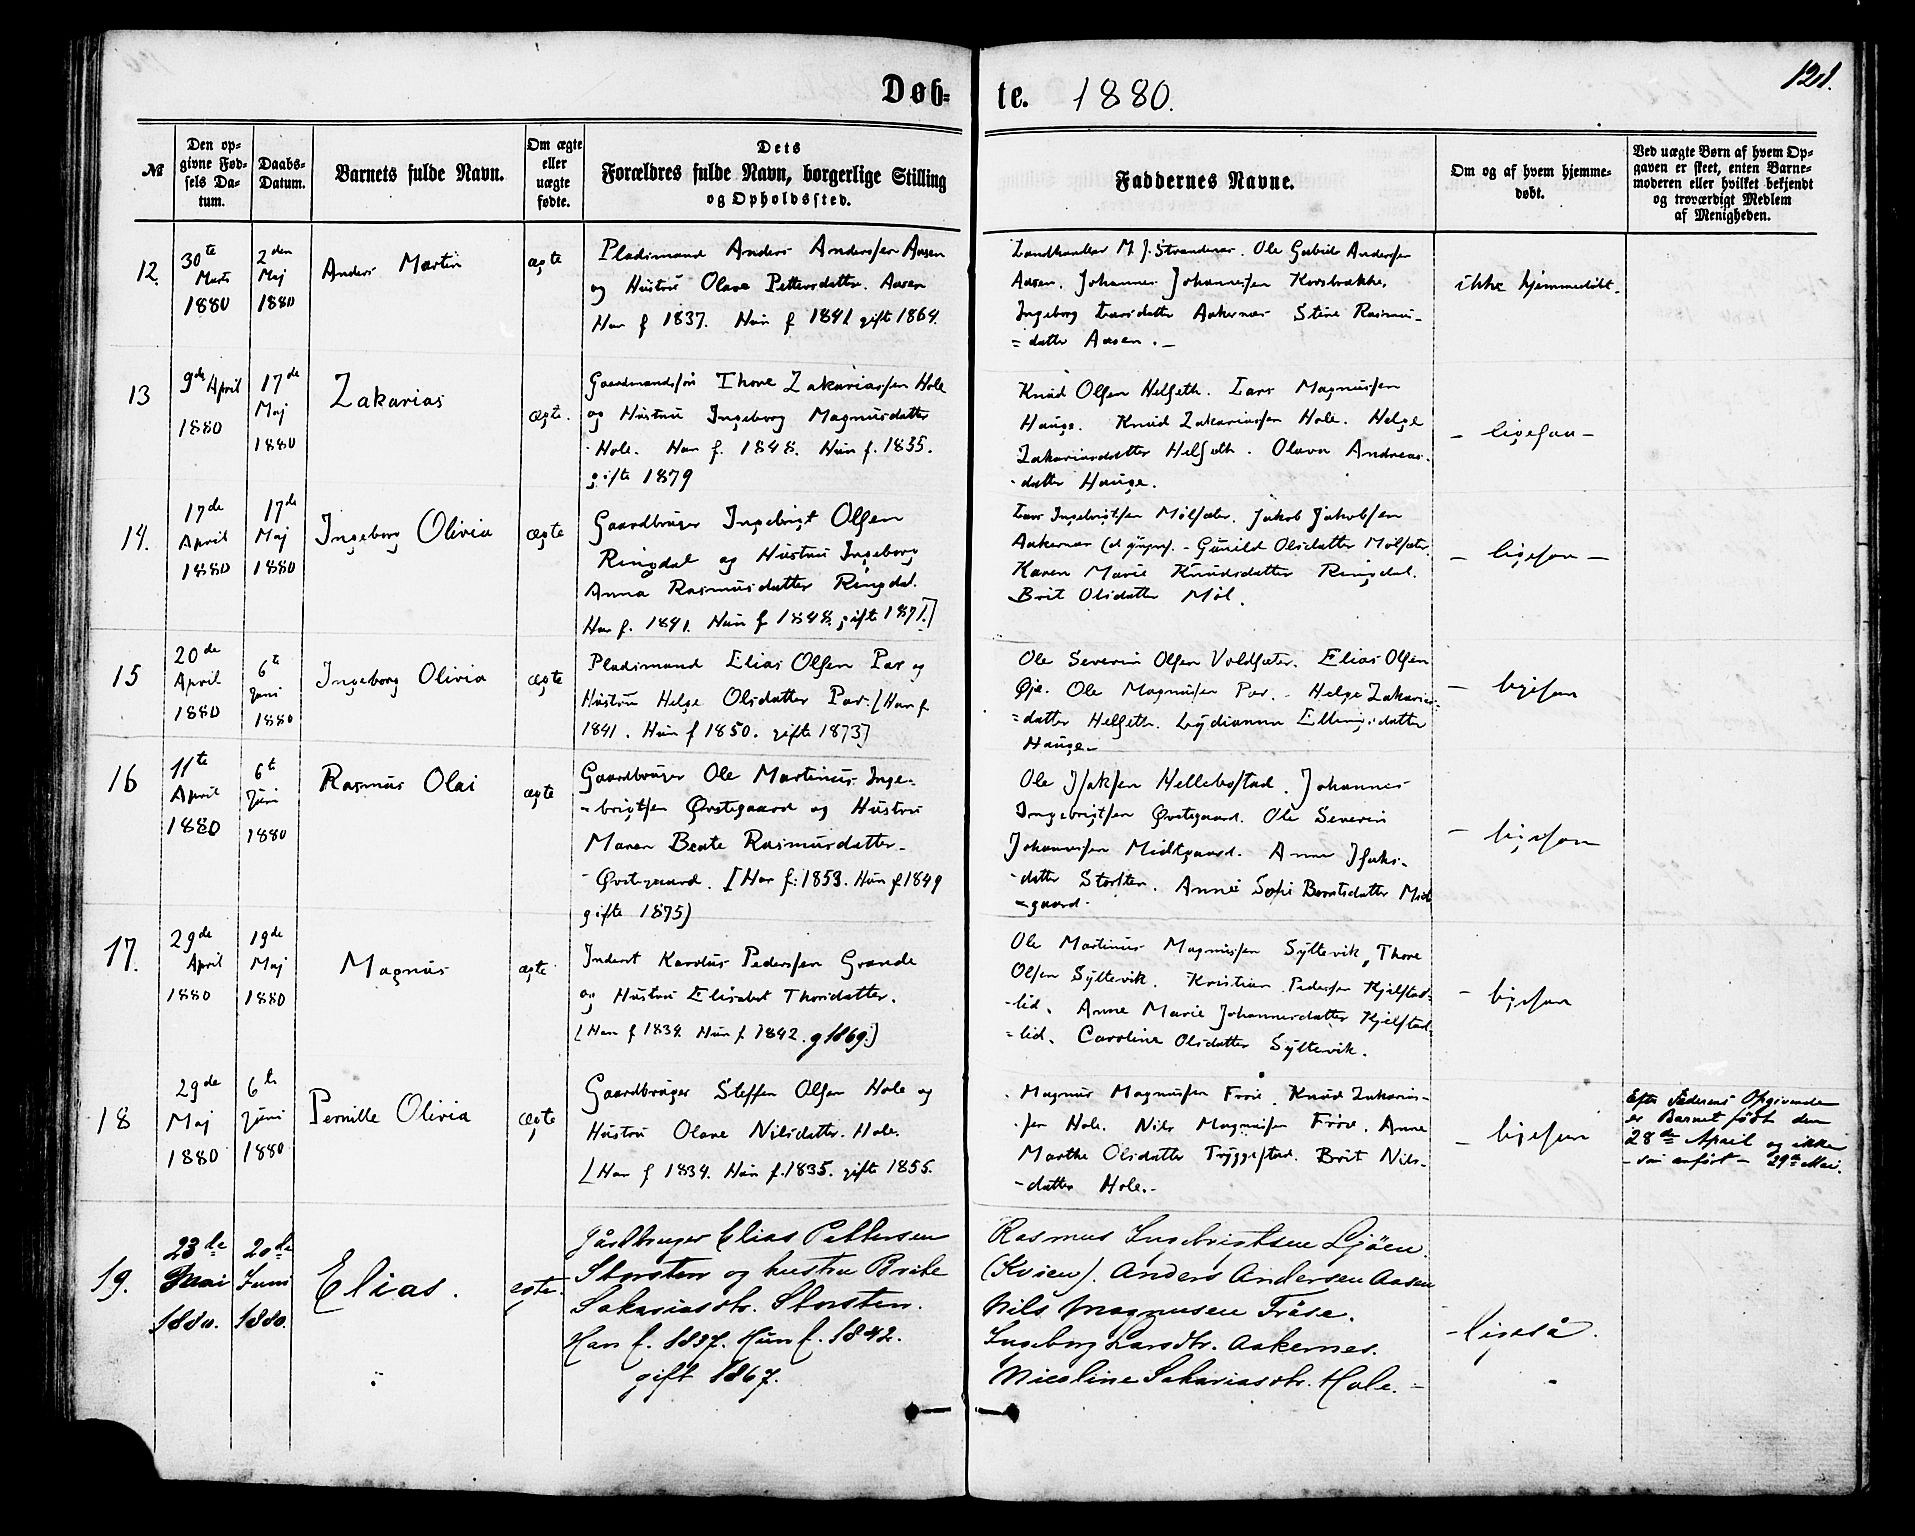 121.
Døb-te. 1880.
№
Den opgivne Fødsels Datum.
Daabs-Datum.
Barnets fulde Navn.
Om ægte eller uægte fødte.
Dets Forældres fulde Navn, borgerlige Stilling og Opholdssted.
Faddernes Navne.
Om og af hvem hjemmedøbt.
Ved uægte Børn af hvem Opgaven er skeet, enten Barnemoderen eller hvilket bekjendt og troværdigt Medlem af Menigheden.
12.
30te Marts 1880
2den Maj 1880
Anders Martin
ægte
Pladsmand Anders Anderssen Aasen
og Hustru Olave Pettersdatter. Aasen
Han f 1837. Hun f 1841 gift 1864.
Landhandler M. J. Strandenæs. Ole Gabriel Anderssen
Aasen. Johannes Johannessen Korsbrække.
Ingeborg Larsdatter Aakernes Stine Rasmus-
=datter Aasen.
ikke hjemmedøbt.
13
9de April 1880
17de Maj 1880
Zakarias
ægte.
Gaardmandssøn Thore Zakariassen Hole
og Hustru Ingeborg Magnusdatter
Hole. Han f. 1848. Hun f. 1835.
gifte 1879
Knud Olsen Helseth. Lars Magnussen
Hauge. Knud Zakariassen Hole. Helge
Zakariasdatter Helseth. Olava Andreas-
-datter Hauge.
- ligesaa -
14.
17de April 1880
17de Maj 1880
Ingeborg Olivia
ægte
Gaardbruger Ingebrigt Olsen
Ringdal og Hustru Ingeborg
Anna Rasmusdatter Ringdal.
Han f. 1841. Hun f 1848. gifte 1871.]
Lars Ingebrigtsen Mölsæter. Jakob Jakobsen
Aakernes - Gunild Olsdatter Mölsæter.
Karen Marie Knudsdatter Ringdal.
Brit Olsdatter Möl.
- ligesaa -
15
20de April 1880
6te Juni 1880
Ingeborg Olivia
ægte
Pladsmand Elias Olsen Par og
Hustru Helge Olsdatter Par. [Han f
1841. Hun f 1850. gifte 1873]
Ole Severin Olsen Voldsæter. Elias Olsen
Øje. Ole Magnussen Par. - Helge Zakarias-
=datter Helseth. Lydianna Ellingsdatter
Hauge-
- ligesaa
16
11te April 1880
6te Juni 1880
Rasmus Olai
ægte
Gaardbruger Ole Martinus Inge-
-brigtsen Øvstegaard og Hustru
Maren Beate Rasmusdatter-
- Øvstegaard. [Han f: 1853. Hun f 1849
gifte 1875)
Ole Isaksen Hellebostad. Johannes
Ingebrigtsen Øvstegaard. Ole Severin
Johannessen Midtgaard. Anne Isaks-
-datter Storsten. Anne Sofie Berntsdatter Mid
-gaard.
- ligesaa
17.
29de April 1880
19de Maj 1880
Magnus
ægte
Inderst Karolus Pederssen Grande
og Hustru Elisabet Thorsdatter.
[Han f 1834. Hun f 1842. g 1869.]
Ole Martinus Magnussen Syltevik, Thore
Olsen Syltevik. Kristian Pedersen Kjelstad-
-lid. Anne Marie Johannesdatter Kjelstad-
=lid. Caroline Olsdatter Syltevik.
- ligesaa
18
29de Maj 1880
6te Juni 1880
Pernille Olivia
ægte
Gaardbruger Steffen Olsen Hole og
Hustru Olave Nilsdatter. Hole.
[Han f 1834. Hun f. 1835. gifte 1855.
Magnus Magnussen Frøse. Knud Zakarias-
-sen Hole. Nils Magnussen Frøse. Anne
Marthe Olsdatter Tryggestad. Brit Nils-
-datter Hole.-
- ligesaa
Efter Faderens Opgivende
er Barnet født den
28de April og ikke
- som anført - 29de Mai.
19.
23de Mai 1880.
20de Juni 1880.
Elias.
egte.
Gårdbruger Elias Pettersen
Storsten og hustru Brite
Sakariasdtr. Storsten.
Han f. 1837. Hun f. 1842.
gift 1867.
Rasmus Ingebrigtsen Ljöen.
(Kvien). Anders Andersen Aasen
Nils Magnusen Fröse.
Ingeborg Larsdtr. Aakernes.
Nicoline Sakariasdtr. Hole. -
- ligeså.